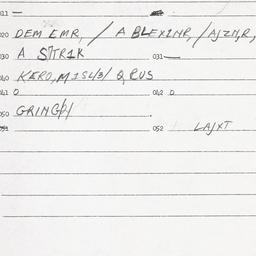 011 —
020 DEM EMR, / A BLEXINR, / AJZNR,
030 A STTR1K 031 —
040 KERO, M1SL/3/ Q, RUS
041 0 042 0
050 GRING/2/ .
051 052 LAJXT